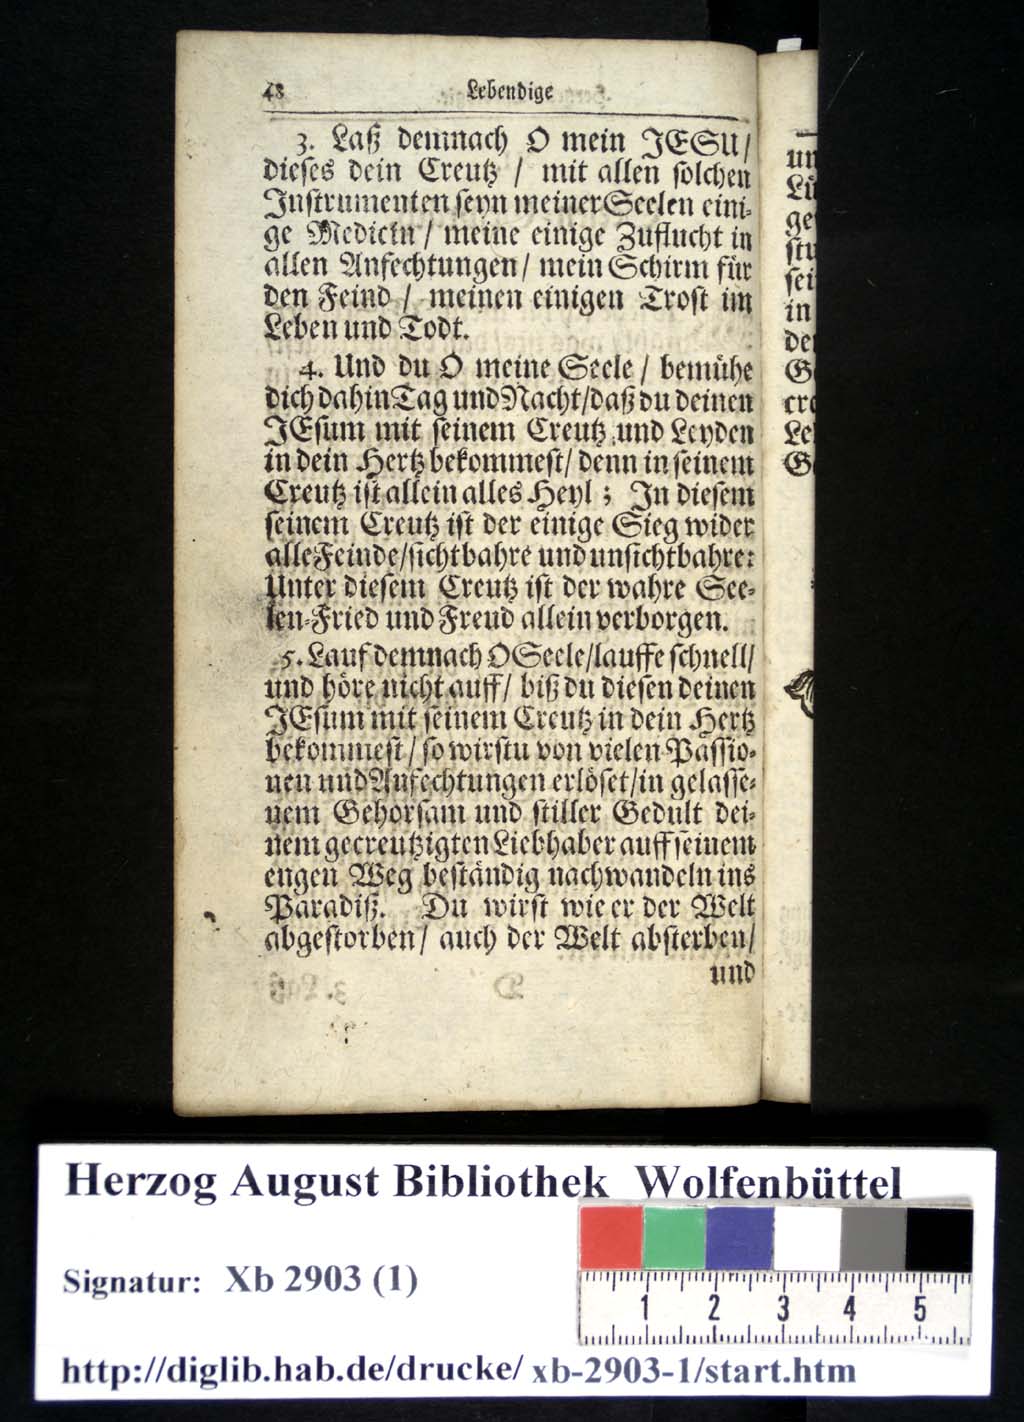 48 Lebendige
3. Laß demnach O mein JESU/
dieses dein Creutz / mit allen solchen
Instrumenten seyn meiner Seelen eini-
ge Medicin / meine einige Zuflucht in
allen Anfechtungen / mein Schirm für
den Feind / meinen einigen Trost im
Leben und Todt.
4. Und du O meine Seele / bemühe
dich dahin Tag und Nacht/daß du deinen
JEsum mit seinem Creutz und Leyden
in dein Hertz bekommest/ denn in seinem
Creutz ist allein alles Heyl; In diesem
seinem Creutz ist der einige Sieg wider
alle Feinde/sichtbahre und unsichtbahre:
Unter diesem Creutz ist der wahre See-
len-Fried und Freud allein verborgen.
5. Lauf demnach O Seele/lauffe schnell/
und höre nicht auff/ biß du diesen deinen
JEsum mit seinem Creutz in dein Hertz
bekommest/ so wirstu von vielen Passio-
nen und Anfechtungen erlöset/in gelasse-
nem Gehorsam und stiller Gedult dei-
nem gecreutzigten Liebhaber auff seinem
engen Weg beständig nachwandeln ins
Paradiß. Du wirst wie er der Welt
abgestorben/ auch der Welt absterben/
und
Herzog August Bibliothek Wolfenbüttel
Signatur: Xb 2903 (1)
1 2 3 4 5
http://diglib.hab.de/drucke/ xb-2903-1/start.htm